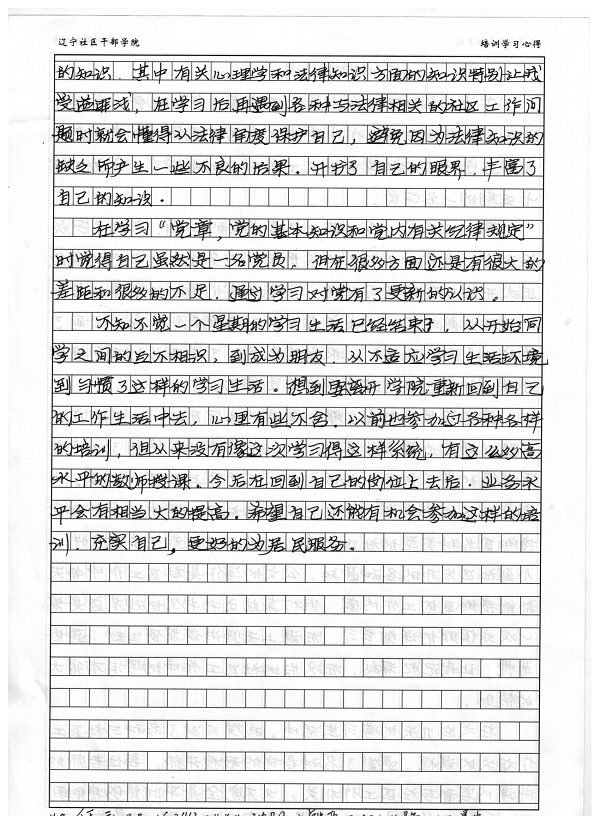 辽宁社区干部学院 培训学习心得
的知识．其中有关心理学和法律知识方面的知识特别让我
受益匪浅，在学习后再遇到各种与法律相关的社区工作问
题时就会懂得从法律角度保护自己，避免因为法律知识的
缺乏所产生一些不良的后果．开拓了自己的眼界．丰富了
自己的知识．
在学习“党章，党的基本知识和党内有关纪律规定”
时觉得自己虽然是一名党员，但在很多方面还是有很大的
差距和很多的不足，通过学习对党有了更新的认识。
不知不觉一个星期的学习生活已经结束了，从开始同
学之间的互不相识，到成为朋友．从不适应学习生活环境
到习惯了这样的学习生活。想到要离开学院重新回到自己
的工作生活中去，心里有些不舍．以前也参加过各种各样
的培训，但从来没有像这次学习得这样系统，有这么多高
水平的教师授课．今后在回到自己的岗位上去后．业务水
平会有相当大的提高．希望自己还能有机会参加这样的培
训．充实自己，更好的为居民服务。